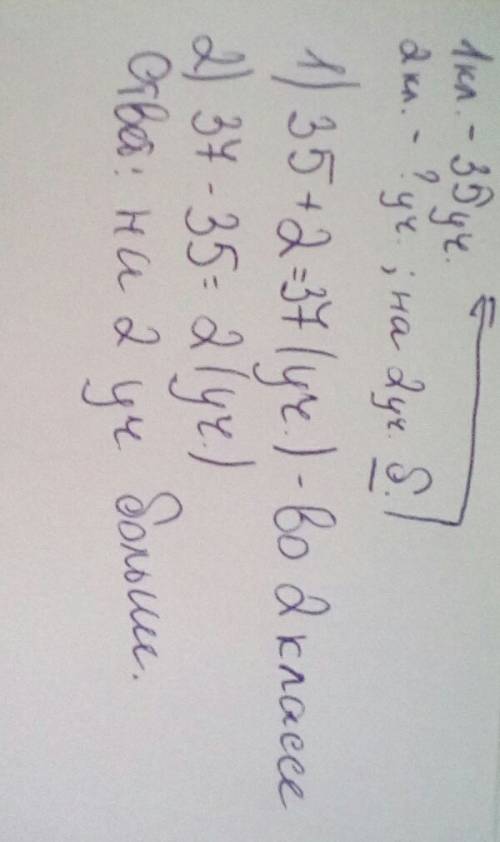 1 кл. - 35 уч.
2 кл. - ? уч.; на 2 уч. б.
1) 35 + 2 = 37 (уч.) - во 2 классе
2) 37 - 35 = 2 (уч.)
Ответ: на 2 уч. больше.